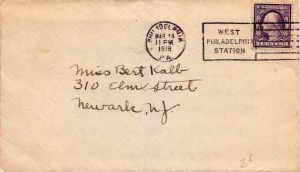 PHILADELPHIA
MAR 14
11 PM
1918
PA.
WEST
PHILADELPHIA
STATION
Miss Bert Kalb
310 Elm Street
Newark, NJ